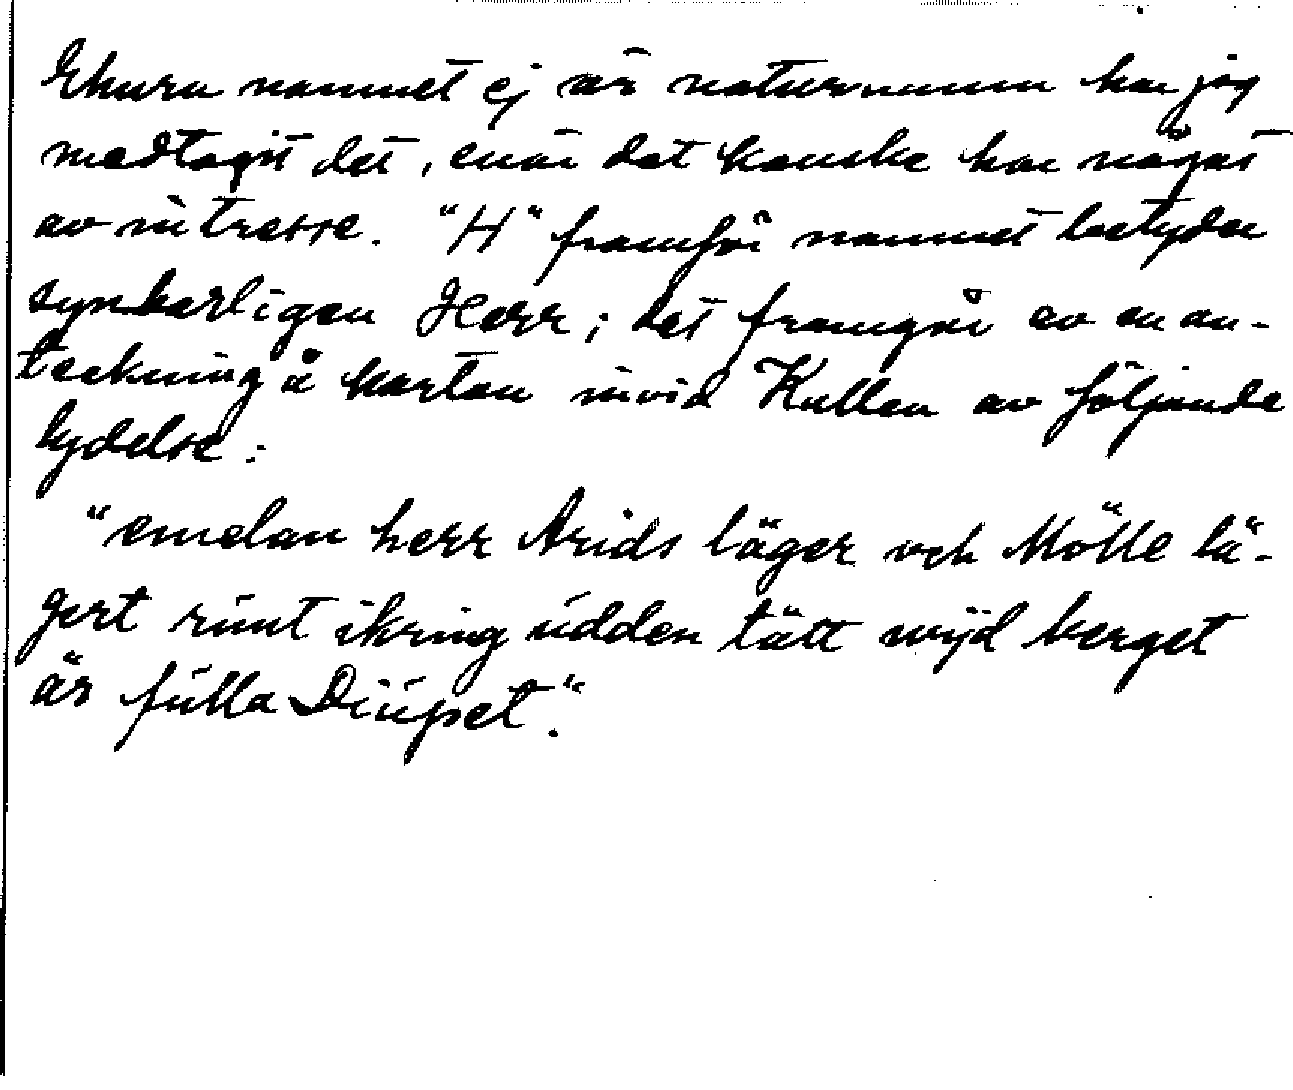 Ehuru namnet ej är naturnamn har jag
medtagit det, enär det kanske har något
av intresse. "H" framför namnet betyder
synbarligen Herr; det framgår av en an-
teckning å kartan invid Kullen av följande
lydelse:
"emelan herr Arids läger och Mölle lä-
gert rúnt ikring údden tätt wijd berget
är fúlla Diúpet."